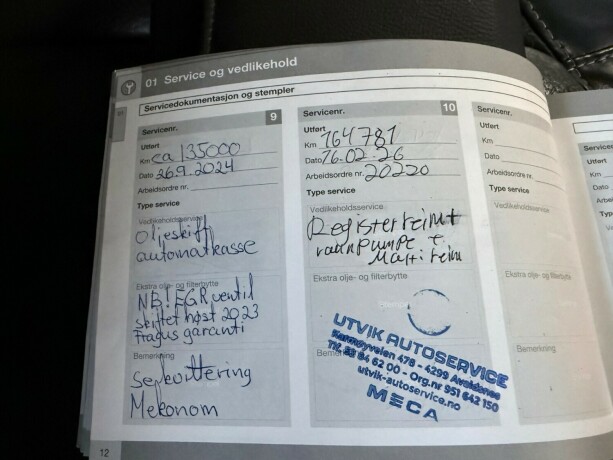 01 Service og vedlikehold
Servicedokumentasjon og stempler
9
Servicenr.
Utført
Km ca 135000
Dato 26.9.2024
Arbeidsordre nr.
Type service
Vedlikeholdsservice
Oljeskift
automatkasse
Ekstra olje- og filterbytte
NB! EGR ventil
skiftet høst 2023
Fragus garanti
Bemerkning
Se kvittering
Mekonom
12
10
Servicenr.
Utført
Km 164781
Dato 16.02.26
Arbeidsordre nr. 20220
Type service
Vedlikeholdsservice
Registerreim +
vannpumpe +
Multireim
Ekstra olje- og filterbytte
UTVIK AUTOSERVICE
Karmøyveien 478 - 4299 Avaldsnes
84 62 00 - Org.nr 951 642 150
utvik-autoservice.no
MECA
Servicenr.
Utført
Km
Dato
Arbeidsordre nr.
Type service
Vedlikeholdsservice
Ekstra olje- og filterbytte
Bemerkning